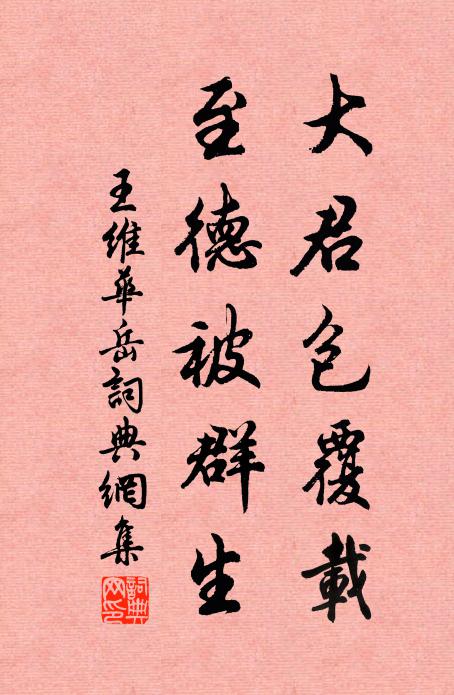 大君包覆載
至德被群生
王維華岳詞典網集
詞典網印